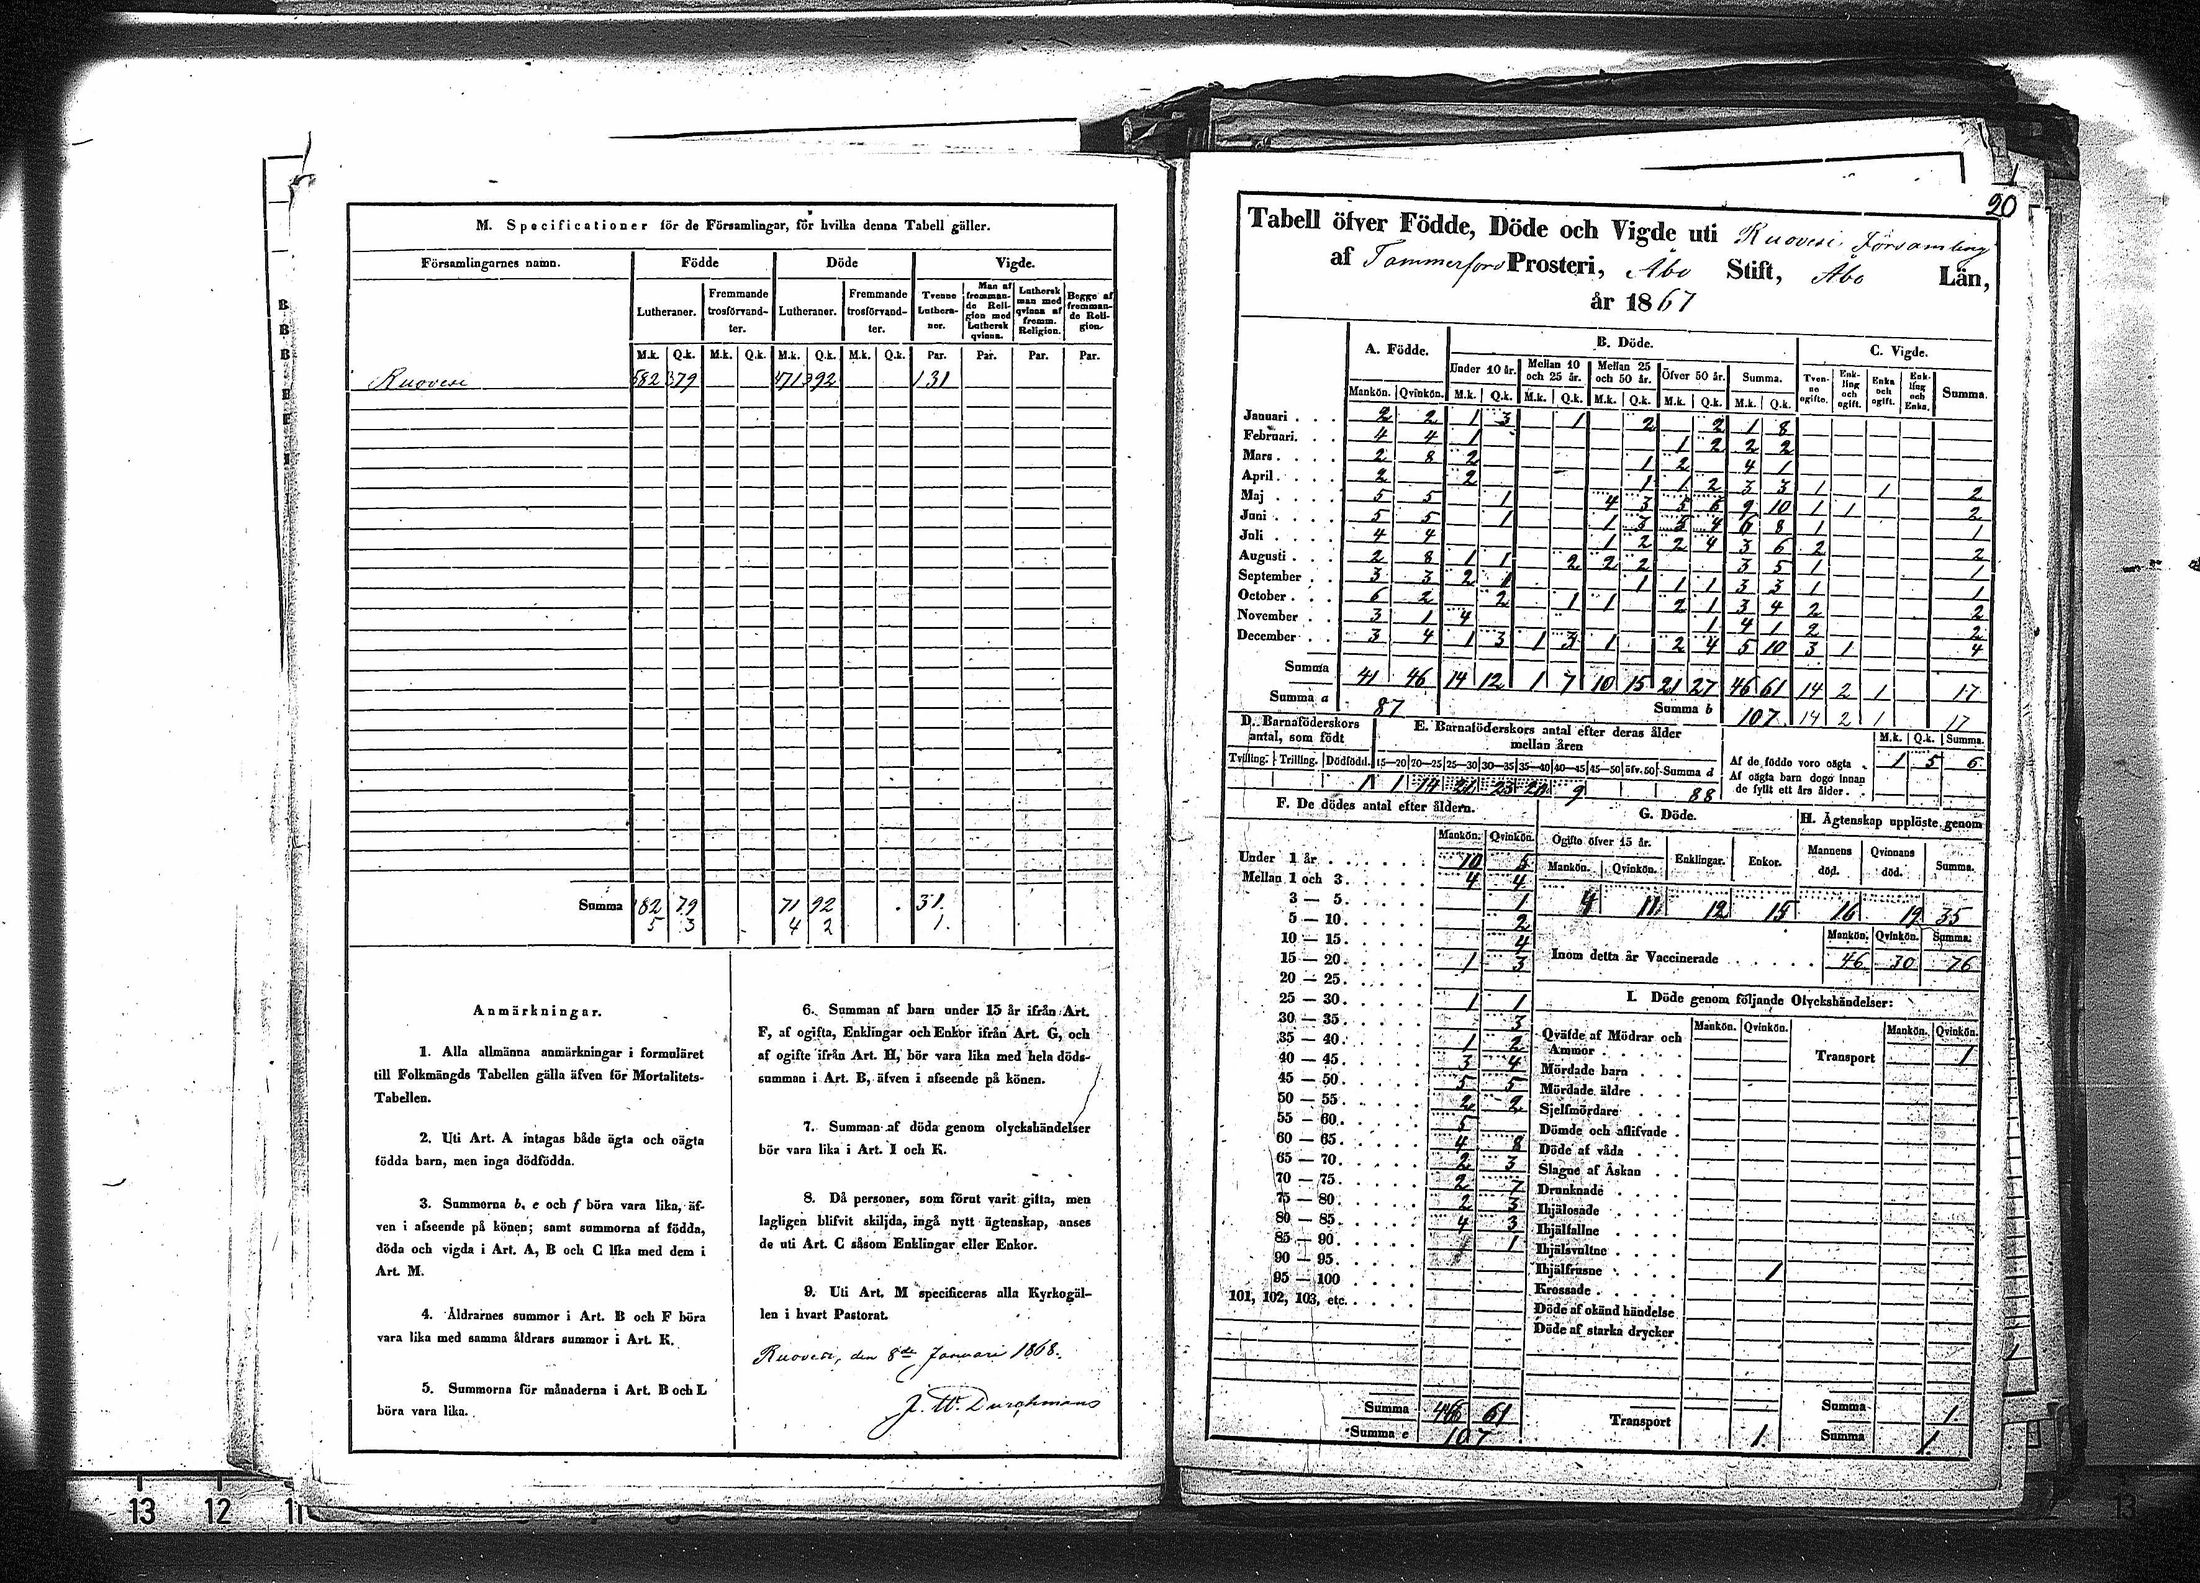 M. Specificationer för de Församlingar, för hvilka denna Tabell gäller.
Församlingarnes namn. Födde Döde Vigde.
Lutheraner. Fremmande trosförvandter. Lutheraner. Fremmande trosförvandter. Tvenne Lutheraner. Man af fremmande Religion med Luthersk qvinna. Luthersk man med qvinna af fremm. Religion. Begge af fremmande Religion.
M.k. Q.k. M.k. Q.k. M.k. Q.k. M.k. Q.k. Par. Par. Par. Par.
Ruovesi 582 379 471 392 131
Summa 82 79 71 92 31.
5 3 4 2 1.
Anmärkningar.
1. Alla allmänna anmärkningar i formuläret
till Folkmängds Tabellen gälla äfven för Mortalitets-
Tabellen.
2. Uti Art. A intagas både ägta och oägta
födda barn, men inga dödfödda.
3. Summorna b, e och f böra vara lika, äf-
ven i afseende på könen; samt summorna af födda,
döda och vigda i Art. A, B och C lika med dem i
Art. M.
4. Åldrarnes summor i Art. B och F böra
vara lika med samma åldrars summor i Art. K.
5. Summorna för månaderna i Art. B och L
böra vara lika.
6. Summan af barn under 15 år ifrån Art.
F, af ogifta, Enklingar och Enkor ifrån Art. G, och
af ogifte ifrån Art. H, bör vara lika med hela döds-
summan i Art. B, äfven i afseende på könen.
7. Summan af döda genom olyckshändelser
bör vara lika i Art. I och K.
8. Då personer, som förut varit gifta, men
lagligen blifvit skiljda, ingå nytt ägtenskap, anses
de uti Art. C såsom Enklingar eller Enkor.
9. Uti Art. M specificeras alla Kyrkogäl-
len i hvart Pastorat.
Ruovesi, den 8de Januari 1868.
20
Tabell öfver Födde, Döde och Vigde uti Ruovesi Församling
af Tammerfors Prosteri, Åbo Stift, Åbo Län,
år 1867
A. Födde. B. Döde. C. Vigde.
Under 10 år. Mellan 10 och 25 år. Mellan 25 och 50 år. Öfver 50 år. Summa. Tvenne ogifte. Enkling och ogift. Enka och ogift. Enkling och Enka. Summa.
Mankön. Qvinkön. M.k. Q.k. M.k. Q.k. M.k. Q.k. M.k. Q.k. M.k. Q.k.
Januari 2 2 1 3 1 2 2 1 8
Februari 4 4 1 1 2 2 2
Mars 2 8 2 1 2 4 1
April 2 2 1 1 2 3 3 1 1 2
Maj 5 5 1 4 3 5 6 9 10 1 1 2
Juni 5 5 1 1 3 5 4 6 8 1 1
Juli 4 4 1 2 2 4 3 6 2 2
Augusti 2 8 1 1 2 2 2 3 5 1 1
September 3 3 2 1 1 1 1 3 3 1 1
October 6 2 2 1 1 2 1 3 4 2 2
November 3 1 4 1 4 1 2 2
December 3 4 1 3 1 3 1 2 4 5 10 3 1 4
Summa 41 46 14 12 1 7 10 15 21 27 46 61 14 2 1 17
Summa a 87 Summa b 107 14 2 1 17
D. Barnaföderskors antal, som född
E. Barnaföderskors antal efter deras ålder mellan åren
M.k. Q.k. Summa.
Tvilling. Trilling. Dödfödd. 15—20 20—25 25—30 30—35 35—40 40—45 45—50 öfv. 50 Summa d
1 1 14 21 23 20 9 88
Af de födde voro oägta 1 5 6
Af oägta barn dogo innan
de fyllt ett års ålder.
F. De dödes antal efter åldern.
Mankön. Qvinkön.
Under 1 år 10 5
Mellan 1 och 3 4 4
3 — 5. 1
5 — 10. 2
10 — 15. 4
15 — 20. 1 3
20 — 25.
25 — 30. 1 1
30 — 35. 3
35 — 40. 1 2
40 — 45. 3 4
45 — 50. 5 5
50 — 55. 2 2
55 — 60. 5
60 — 65. 4 8
65 — 70. 2 3
70 — 75. 2 7
75 — 80. 2 3
80 — 85. 4 3
85 — 90. 1
90 — 95.
95 — 100
101, 102, 103, etc.
Summa 46 61
Summa e 107
G. Döde.
Ogifte öfver 15 år. Enklingar. Enkor.
Mankön. Qvinkön.
4 11 12 15
H. Ägtenskap upplöste genom
Mannens död. Qvinnans död. Summa.
16 19 35
Mankön. Qvinkön. Summa.
Inom detta år Vaccinerade 46 30 76
I. Döde genom följande Olyckshändelser:
Mankön. Qvinkön. Mankön. Qvinkön.
Qväfde af Mödrar och
Ammor
Transport 1
Mördade barn
Mördade äldre
Sjelfmördare
Dömde och aflifvade
Döde af våda
Slagne af Åskan
Drunknade
Ihjälosade
Ihjälfallne
Ihjälsvultne
Ihjälfrusne 1
Krossade
Döde af okänd händelse
Döde af starka drycker
Transport 1.
Summa 1.
Summa 1.
13 12 11
13